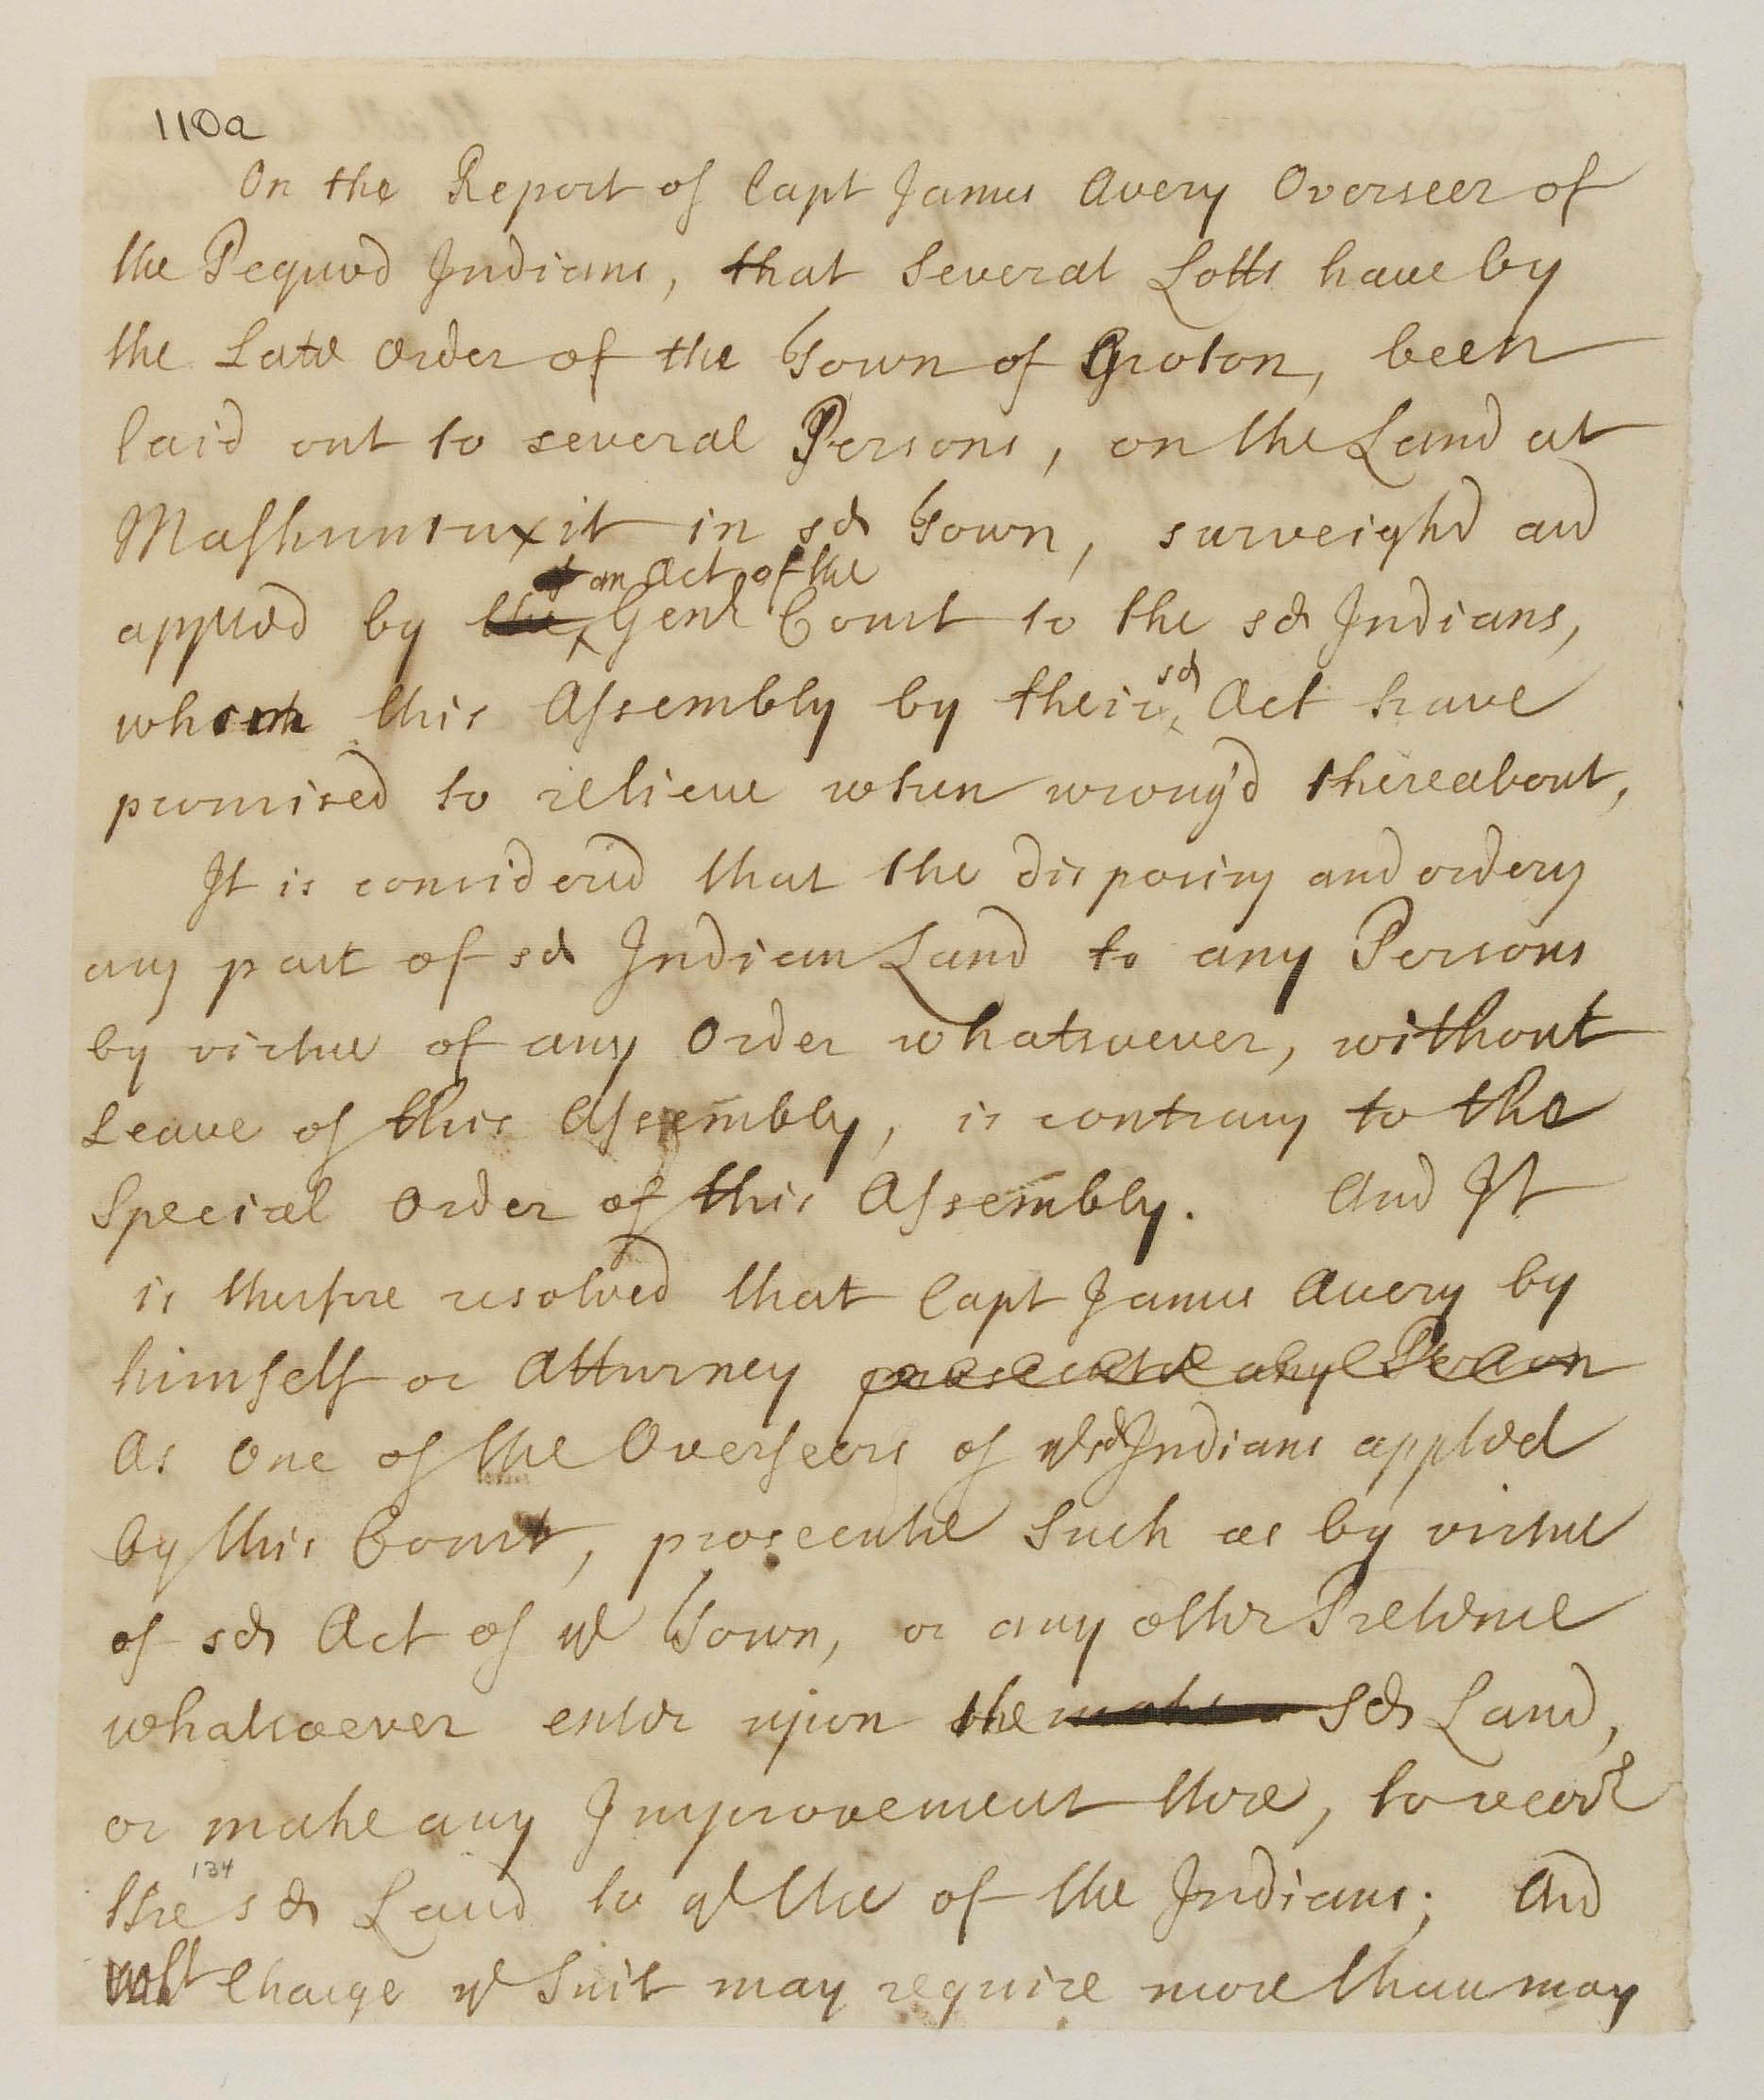 110a
On the Report of Capt James Avery Overseer of
the Pequod Indians, that Several Lotts have by
the Late Order of the Town of Groton, been
laid out to several Persons, on the Land at
Mashuntuxit in sd Town, surveighd and
an Act of the
appted by the Genll Court to the sd Indians,
sd
whom this Assembly by their Act have
promised to relieve when wrong'd thereabout,
It is considered that the disposing and ordery
any part of sd Indian Land to any Persons
by virtue of any Order whatsoever, without
Leave of this Assembly, is contrary to the
Special Order of this Assembly. And It
is therfore resolved that Capt James Avery by
himself or Atturney prosecute any Person
As One of the Overseers of ye sd Indians appted
by this Court, prosecute Such as by virtue
of sd Act of ye Town, or any other Pretence
whatsoever enter upon the sd Land,
or make any Improvement there, to
134
the sd Land to ye Use of the Indians; And
wht Charge ye Suit may require more than may